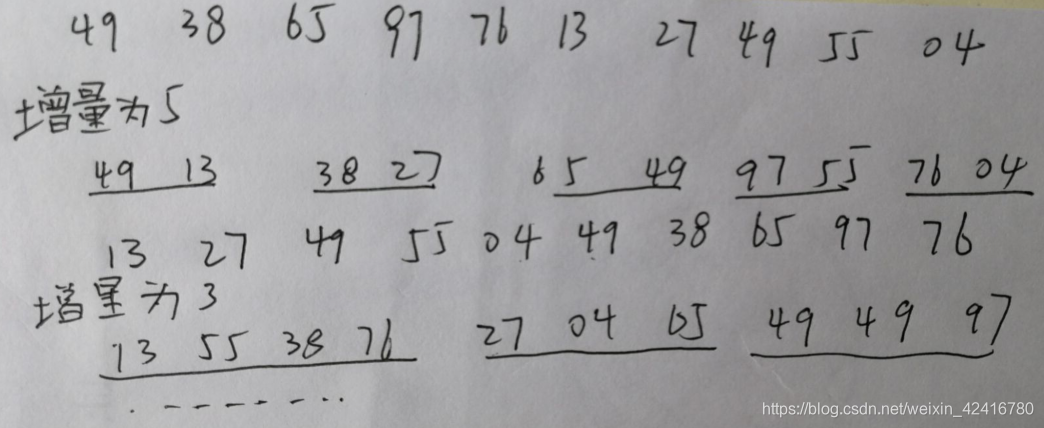 49 38 65 97 76 13 27 49 55 04
增量为5
49 13 38 27 65 49 97 55 76 04
13 27 49 55 04 49 38 65 97 76
增量为3
13 55 38 76 27 04 65 49 49 97
https://blog.csdn.net/weixin_42416780